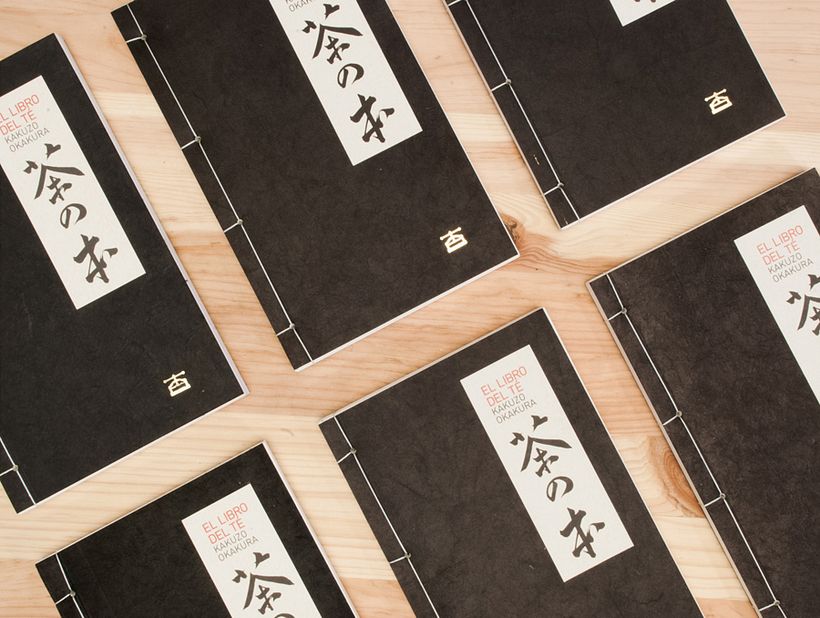 EL LIBRO
DEL TÉ
KAKUZO
OKAKURA
茶の本
OKAKURA
茶の本
EL LIBRO
DEL TÉ
KAKUZO
OKAKURA
茶
EL LIBRO
DEL TÉ
KAKUZO
OKAKURA
茶の本
EL LIBRO
DEL TÉ
KAKUZO
OKAKURA
茶